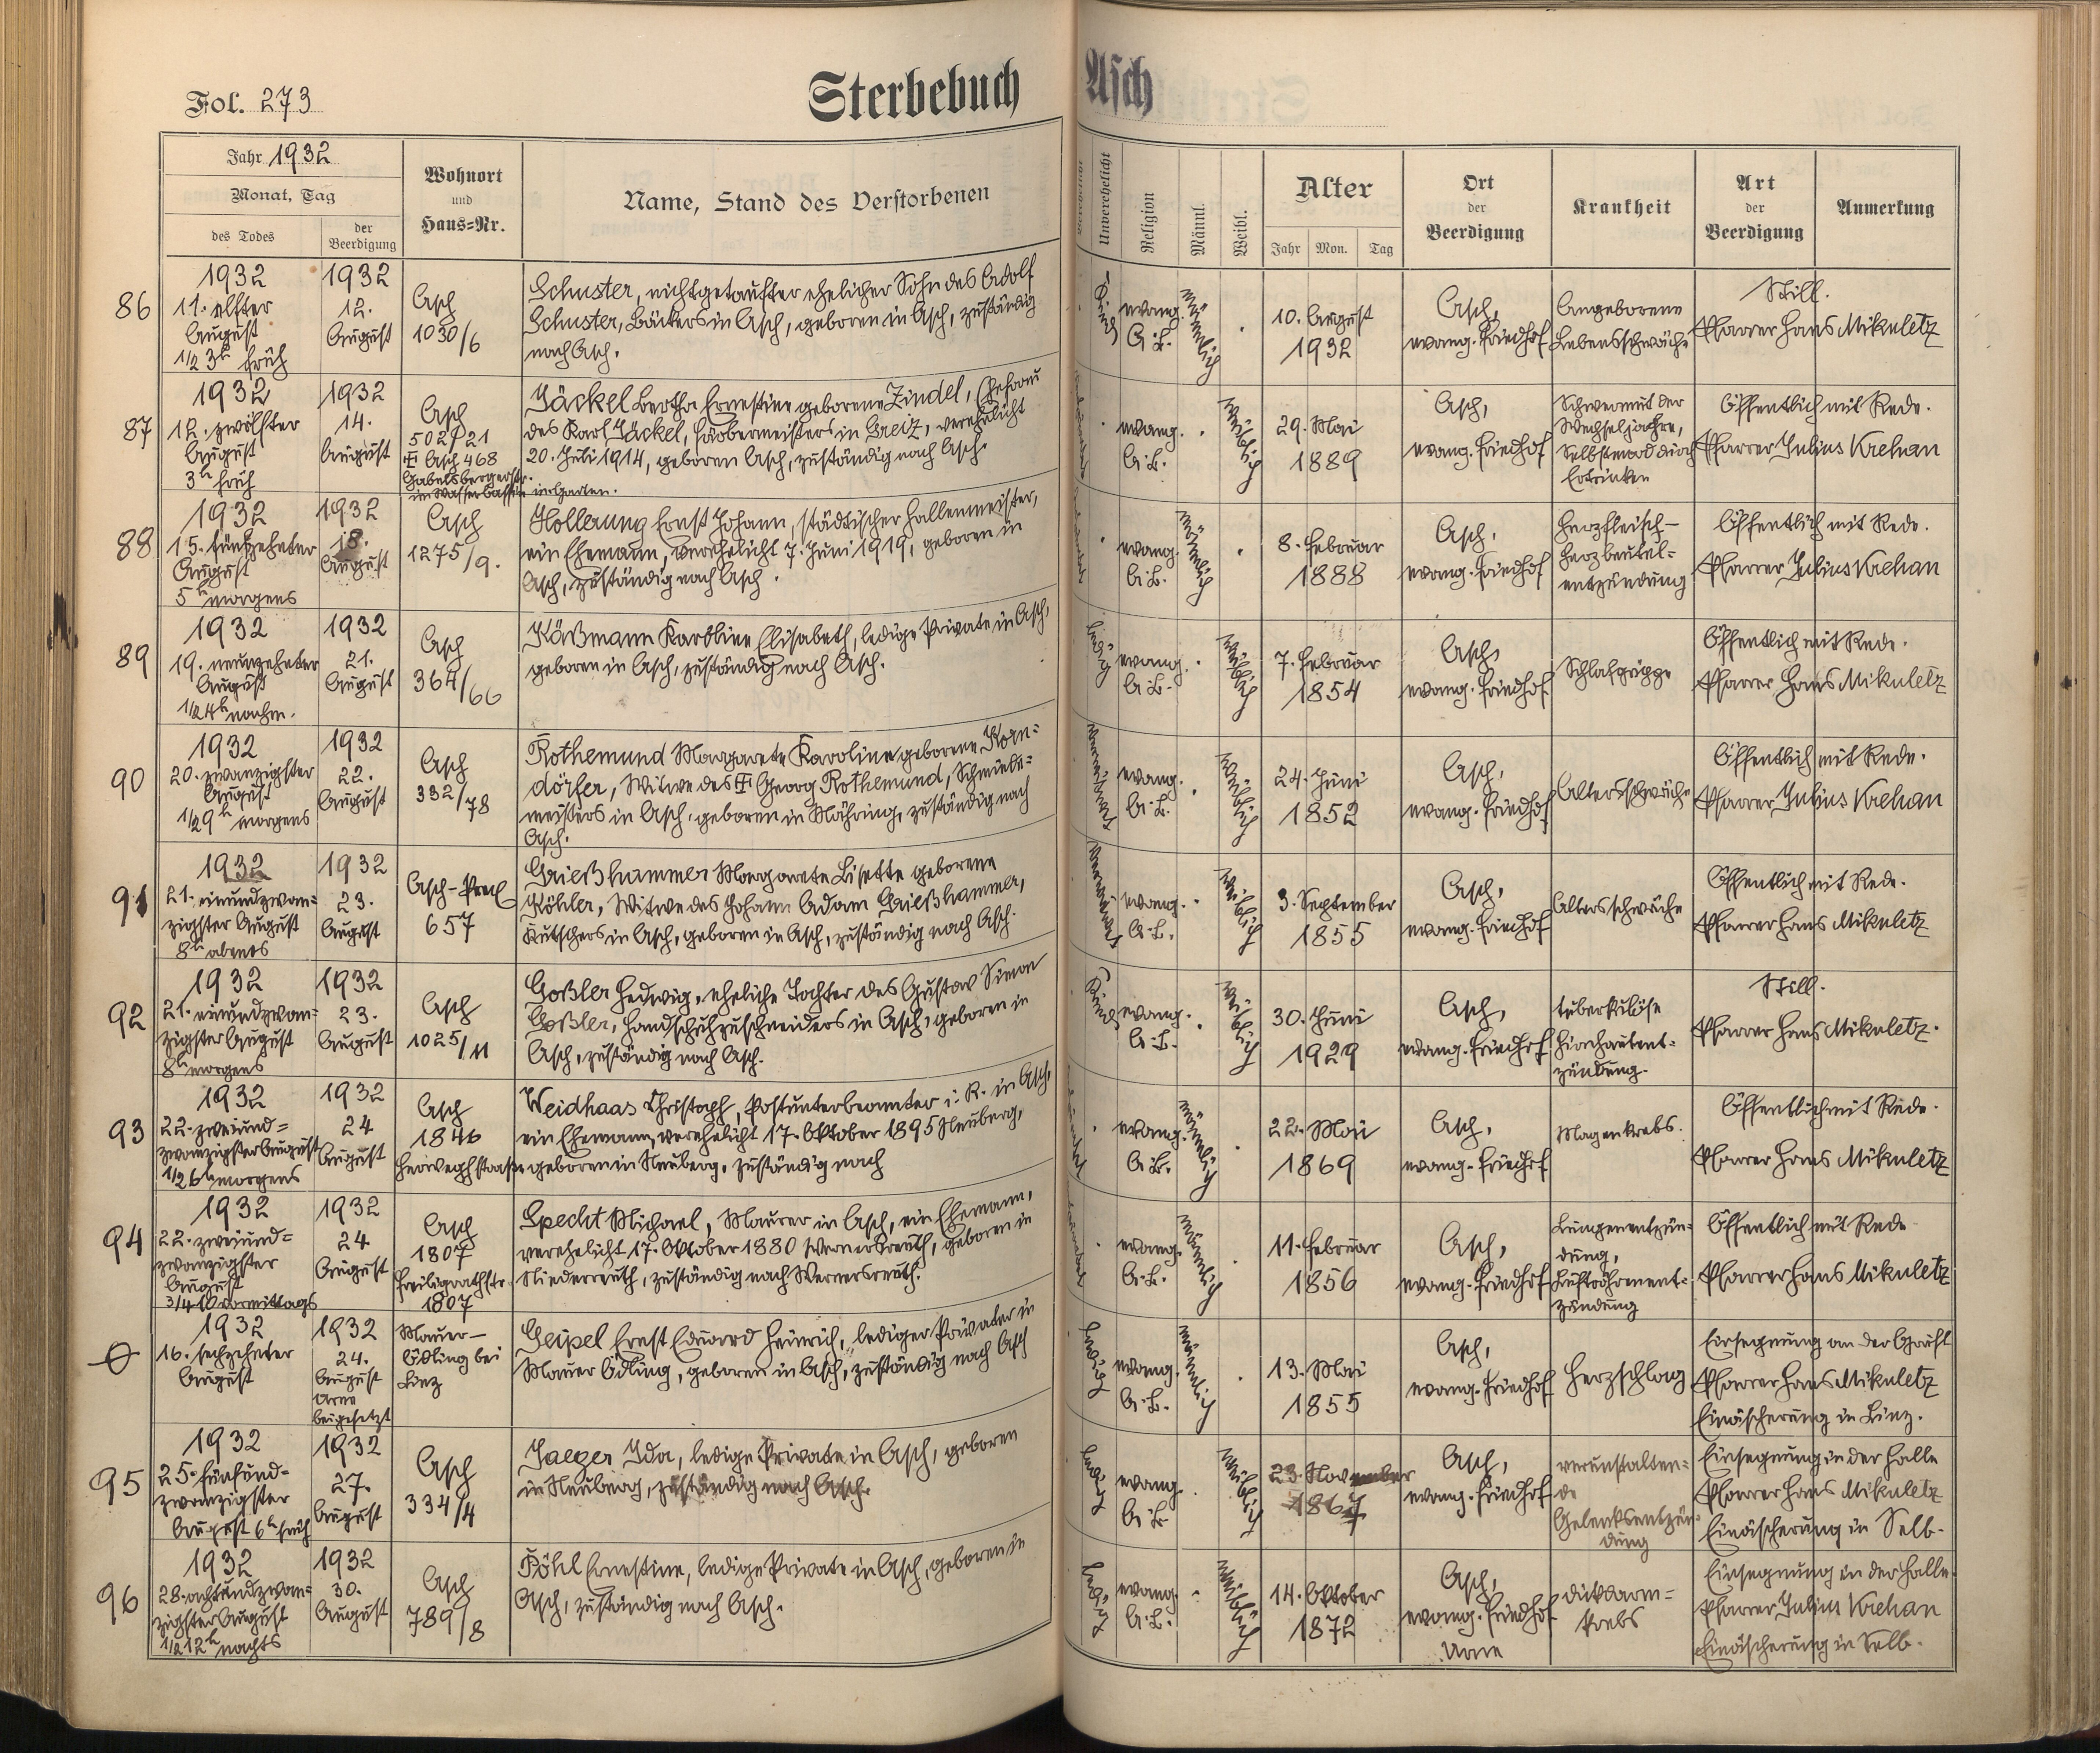 Fol. 273
Sterbebuch
Asch
Jahr 1932
Monat, Tag
des Todes
der
Beerdigung
Wohnort
und
Haus=Nr.
Name, Stand des Verstorbenen
Verehelicht
Unverehelicht
Religion
Männl.
Weibl.
Alter
Jahr Mon. Tag
Ort
der
Beerdigung
Krankheit
Art
der
Beerdigung
Anmerkung
86
1932
11. elfter
August
1/2 3h früh
1932
12.
August
Asch
1030/6
Schuster, nichtgetaufter ehelicher Sohn des Adolf
Schuster, Bäckers in Asch, geboren in Asch, zuständig
nach Asch.
Kind
evang.
A.B.
männlich
10. August
1932
Asch,
evang. Friedhof
Angeborene
Lebensschwäche
Still.
Pfarrer Hans Mikuletz
87
1932
12. zwölfter
August
3h früh
1932
14.
August
Asch
Asch 468
Gabelsbergerstr.
im Wasserbassin im Garten.
Jäckel Bertha Ernestine geborene Zindel, Ehefrau
des Karl Jäckel, Färbermeisters in Greiz, verehelicht
20. Juli 1914, geboren Asch, zuständig nach Asch.
evang.
A.B.
weiblich
29. Mai
1889
Asch,
evang. Friedhof
Schwermut der
Wechseljahre,
Selbstmord durch
Ertrinken
Öffentlich mit Rede.
Pfarrer Julius Krehan
88
1932
15. fünfzehnter
August
5h morgens
1932
18.
August
Asch
1275/9.
Hollerung Ernst Johann, städtischer Hallenmeister,
ein Ehemann, verehelicht 7. Juni 1919, geboren in
Asch, zuständig nach Asch.
evang.
A.B.
männlich
8. Februar
1888
Asch,
evang. Friedhof
Herzfleisch-
Herzbeutel=
entzündung
Öffentlich mit Rede.
Pfarrer Julius Krehan
89
1932
19. neunzehnter
August
1/2 4h nachm.
1932
21.
August
Asch
364/66
Käßmann Karoline Elisabeth, ledige Private in Asch,
geboren in Asch, zuständig nach Asch.
ledig
evang.
A.B.
weiblich
7. Februar
1854
Asch,
evang. Friedhof
Schlafgrippe
Öffentlich mit Rede.
Pfarrer Hans Mikuletz
90
1932
20. zwanzigster
August
1/2 9h morgens
1932
22.
August
Asch
332/78
Rothemund Margarete Karoline geborene Korn=
dörfer, Witwe des Georg Rothemund, Schmiede=
meisters in Asch, geboren in Mähring, zuständig nach
Asch.
verwitwet
evang.
A.B.
weiblich
24. Juni
1852
Asch,
evang. Friedhof
Altersschwäche
Öffentlich mit Rede.
Pfarrer Julius Krehan
91
1932
21. einundzwan=
zigster August
8h abends
1932
23.
August
Asch-
657
Grießhammer Margarete Lisette geborene
Köhler, Witwe des Johann Adam Grießhammer,
Kutschers in Asch, geboren in Asch, zuständig nach Asch.
verwitwet
evang.
A.B.
weiblich
3. September
1855
Asch,
evang. Friedhof
Altersschwäche
Öffentlich mit Rede.
Pfarrer Hans Mikuletz
92
1932
21. einundzwan=
zigster August
8h morgens
1932
23.
August
Asch
1025/11
Goßler Hedwig, eheliche Tochter des Gustav Simon
Goßler, Handschuhzuschneiders in Asch, geboren in
Asch, zuständig nach Asch.
Kind
evang.
A.B.
weiblich
30. Juni
1929
Asch,
evang. Friedhof
tuberkulöse
Hirnhautent=
zündung.
Still.
Pfarrer Hans Mikuletz.
93
1932
22. zweiund=
zwanzigster August
1/2 6h morgens
1932
24
August
Asch
1846
Herweghstraße
Weidhaas Christoph, Postunterbeamter i. R. in Asch,
ein Ehemann, verehelicht 17. Oktober 1895 Neuberg,
geboren in Neuberg, zuständig nach
evang.
A.B.
männlich
22. Mai
1869
Asch,
evang. Friedhof
Magenkrebs.
Öffentlich mit Rede.
Pfarrer Hans Mikuletz
94
1932
22. zweiund=
zwanzigster
August
3/4 10 vormittags
1932
24
August
Asch
1807
Freiligrathstr.
1807
Specht Michael, Maurer in Asch, ein Ehemann,
verehelicht 17. Oktober 1880 Wernersreuth, geboren in
Niederreuth, zuständig nach Wernersreuth.
evang.
A.B.
männlich
11. Februar
1856
Asch,
evang. Friedhof
Lungenentzün=
dung,
Luftröhrenent=
zündung
Öffentlich mit Rede
Pfarrer Hans Mikuletz
1932
16. sechzehnter
August
1932
24.
August
Urne
beigesetzt
Mauer-
Öhling bei
Linz
Geipel Ernst Eduard Heinrich, lediger Privater in
Mauer Öhling, geboren in Asch, zuständig nach Asch
ledig
evang.
A.B.
männlich
13. Mai
1855
Asch,
evang. Friedhof
Herzschlag
Einsegnung an der Gruft
Pfarrer Hans Mikuletz
Einäscherung in Linz.
95
1932
25. fünfund=
zwanzigster
August 6h früh
1932
27.
August
Asch
334/4
Jaeger Ida, ledige Private in Asch, geboren
in Neuberg, zuständig nach Asch.
ledig
evang.
A.B.
weiblich
23. November
1867
Asch,
evang. Friedhof
verunstalten=
de
Gelenksentzün=
dung
Einsegnung in der Halle
Pfarrer Hans Mikuletz
Einäscherung in Selb.
96
1932
28. achtundzwan=
zigster August
1/2 12h nachts
1932
30.
August
Asch
789/8
Pöhl Ernestine, ledige Private in Asch, geboren in
Asch, zuständig nach Asch.
ledig
evang.
A.B.
weiblich
14. Oktober
1872
Asch,
evang. Friedhof
Urne
Dickdarm=
krebs
Einsegnung in der Halle.
Pfarrer Julius Krehan
Einäscherung in Selb.